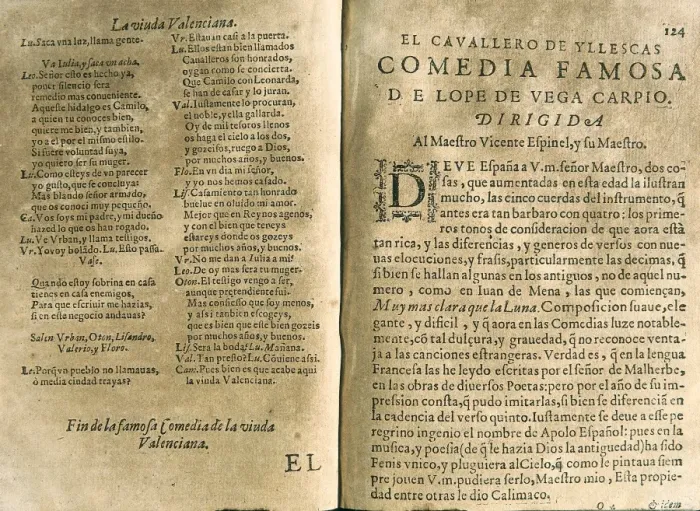 La viuda Valenciana.
Lu. Saca vna luz, llama gente.
Va Iulia, y saca vn acha.
Leo. Señor esto es hecho ya,
poner silencio sera
remedio mas conueniente.
Aqueste hidalgo es Camilo,
a quien tu conoces bien,
quiere me bien, y tambien,
yo a el por el mismo estilo.
Si fuere voluntad suya,
yo quiero ser su muger.
Lu. Como esteys de vn parecer
yo gusto, que se concluya
Mas blando señor armado,
que os conoci muy pequeño.
Ca. Vos soys mi padre, y mi dueño
hazed lo que os han rogado.
Lu. Ve Vrban, y llama testigos.
Vr. Yo voy bolãdo. Lu. Esto passa.
Vase.
Quando estoy sobrina en casa
tienes en casa enemigos,
Para que escriuir me hazias,
si en este negocio andauas?
Salen Vrban, Oton, Lisandro,
Valerio, y Floro.
Le. Porq̃ vn pueblo no llamauas,
ò media ciudad trayas?
Fin de la famosa Comedia de la viuda
Valenciana.
Vr. Estauan casi a la puerta.
Lu. Ellos estan bien llamados
Caualleros son honrados,
oygan como se concierta.
Que Camilo con Leonarda,
se han de casar y lo juran.
Val. Iustamente lo procuran,
el noble, y ella gallarda.
Oy de mil tesoros llenos
os haga el cielo a los dos,
y gozeis os, ruego a Dios,
por muchos años, y buenos.
Flo. En vn dia mi señor,
y yo nos hemos casado.
Lis. Casamiento tan honrado
buelue en oluido mi amor.
Mejor que en Rey nos agenos,
y con el bien que teneys
estareys donde os gozeys
por muchos años, y buenos.
Vr. No me dan a Iulia a mi?
Leo. De oy mas sera tu muger.
Oton. El testigo vengo a ser,
aunque pretendiente fui.
Mas confiesso que soy menos,
y assi tambien escogeys,
que es bien que este bien gozeis
por muchos años, y buenos.
Lis. Sera la boda? Lu. Mañana.
Val. Tan presto? Lu. Cõuiene assi.
Cam. Pues bien es que acabe aqui
la viuda Valenciana.
EL
124
EL CAVALLERO DE YLLESCAS
COMEDIA FAMOSA
DE LOPE DE VEGA CARPIO.
DIRIGIDA
Al Maestro Vicente Espinel, y su Maestro.
DEVE España a V.m. señor Maestro, dos co-
sas, que aumentadas en esta edad la ilustran
mucho, las cinco cuerdas del instrumento, q̃
antes era tan barbaro con quatro: los prime-
ros tonos de consideracion de que aora està
tan rica, y las diferencias, y generos de versos con nue-
uas elocuciones, y frasis, particularmente las decimas, q̃
si bien se hallan algunas en los antiguos, no de aquel nu-
mero, como en Iuan de Mena, las que comiençan,
Muy mas clara que la Luna. Composicion suaue, ele
gante, y dificil, y q̃ aora en las Comedias luze notable-
mente, cõ tal dulçura, y grauedad, q̃ no reconoce venta-
ja a las canciones estrangeras. Verdad es, q̃ en la lengua
Francesa las he leydo escritas por el señor de Malherbe,
en las obras de diuersos Poetas: pero por el año de su im-
pression consta, q̃ pudo imitarlas, si bien se diferenciã en
la cadencia del verso quinto. Iustamente se deue a esse pe
regrino ingenio el nombre de Apolo Español: pues en la
musica, y poesia (de q̃ le hazia Dios la antiguedad) ha sido
Fenis vnico, y pluguiera al Cielo, q̃ como le pintaua siem
pre jouen V.m. pudiera serlo, Maestro mio, Esta propie-
dad entre otras le dio Calimaco,